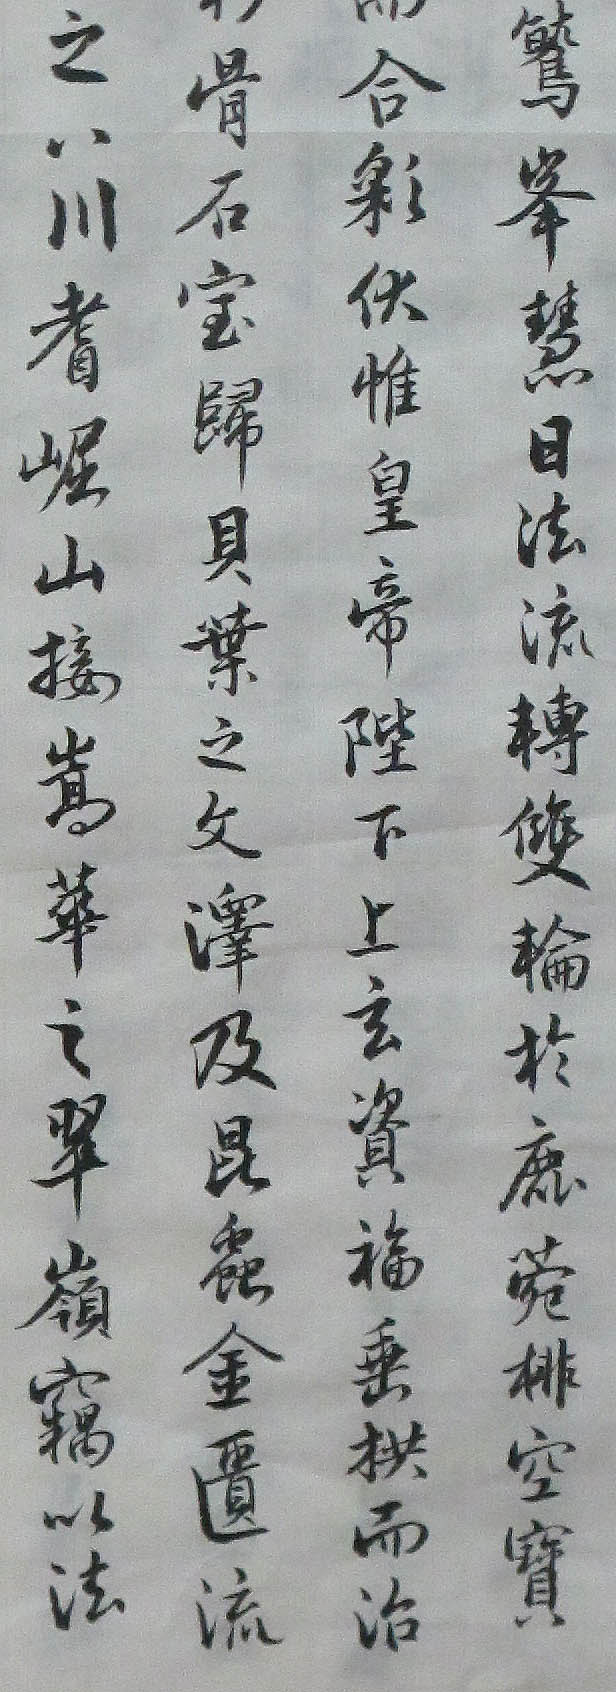 鷲峯慧日法流轉雙輪於鹿菀排空寶
而合彩伏惟皇帝陛下上玄資福垂拱而治
骨石宝歸貝葉之文澤及昆蟲金匱流
之八川耆崛山接嵩華之翠嶺竊以法